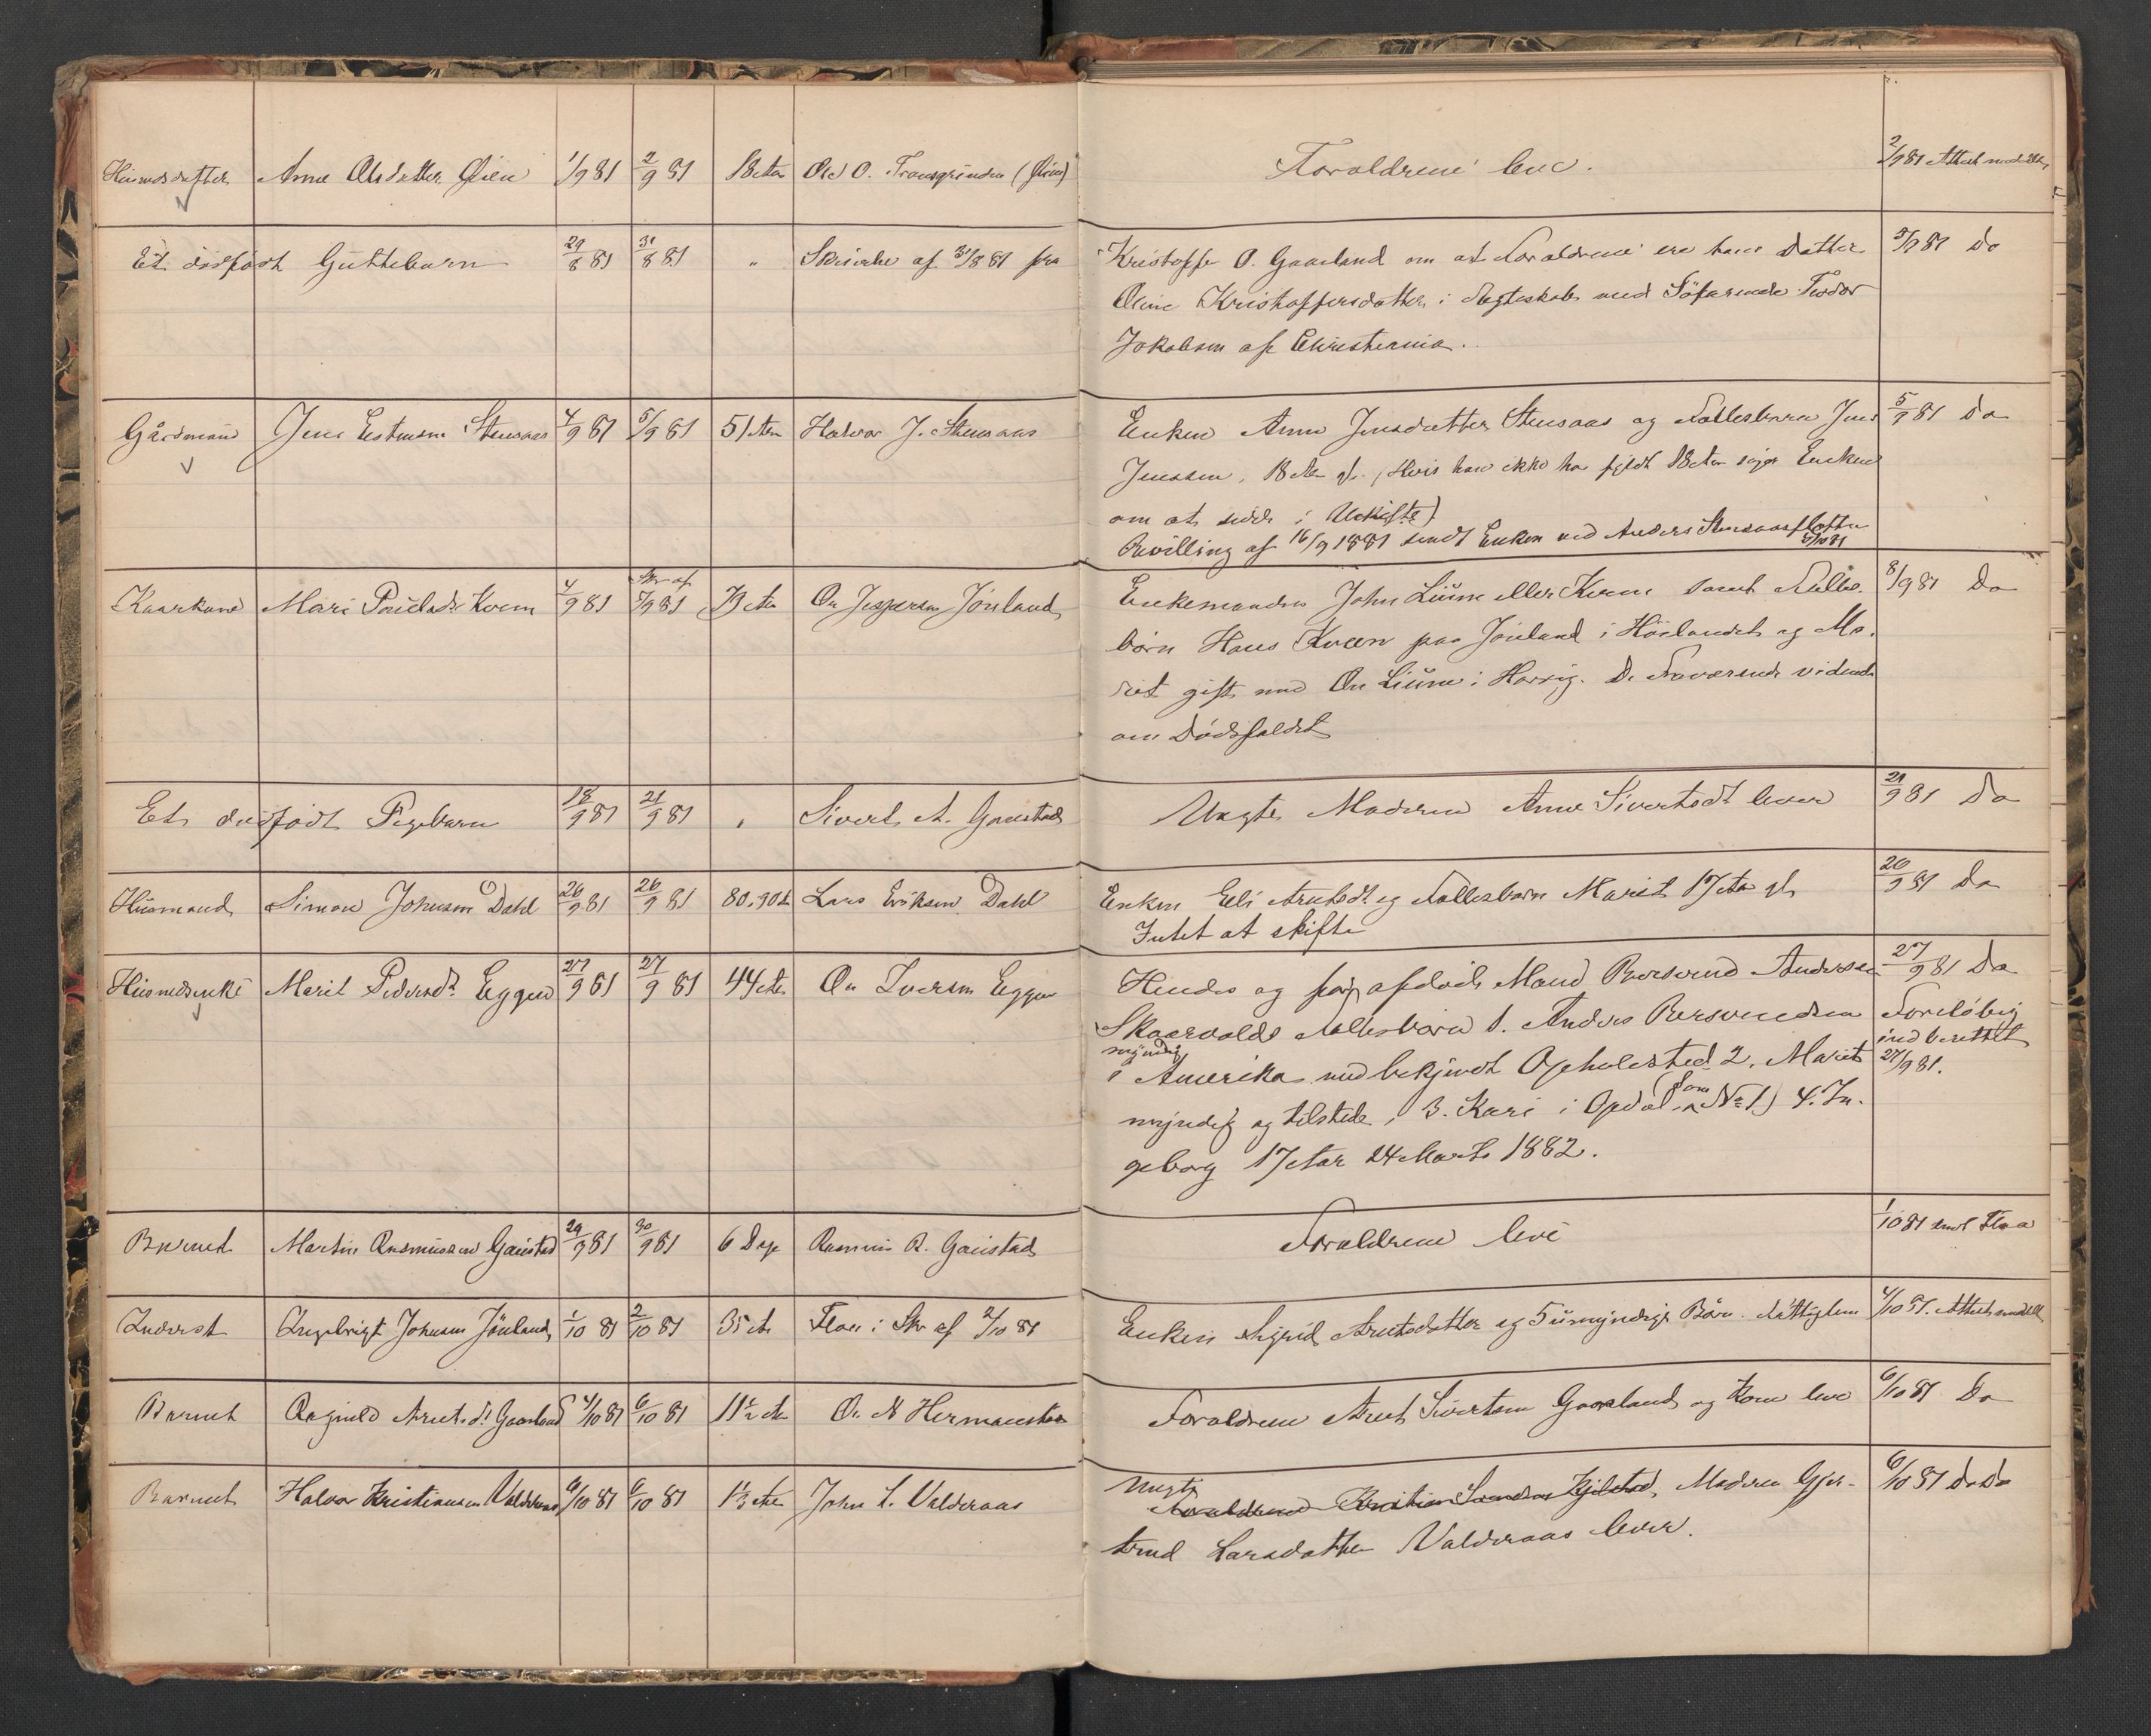 Husmdsdatter Anne Olsdatter Øien 1/9 81 2/9 81 18 Aar Ole O. Trøensgrinden (Øien) Forældrene leve. 2/9 81 Attest meddelt
Et dødfødt Guttebarn 29/8 81 31/8 81 " Skrivelse af 31/8 81 fra Kristoffer O. Gaarland om at Forældrene ere hans Datter 5/9 81 Do
Oline Kristoffersdatter i Ægteskab med Søfarende Teodor
Jakobsen af Christiania.
Gårdmand Jens Estensen Stensaas 4/9 81 5/9 81 51 Aar Halvor J. Stensaas Enken Anne Jensdatter Stensaas og Fællesbarn Jens 5/9 81 Do
Jenssen, 18 Aar gl. (Hvis han ikke har fyldt 18 Aar søger Enken
om at sidde i Uskifte)
Bevilling af 16/9 1881 sendt Enken ved Anders Stensaasflotten
Kaarkone Mari Poulsdt. Kveen 4/9 81 Skr af 7/9 81 73 Aar Ole Jespersen Jönland Enkemanden John Lium eller Kveen samt Fælles- 8/9 81 Do
børn Hans Kveen paa Jönland i Höilandet og Ma-
rit gift med Ole Lium i Horrig. De Fraværende vidende
om Dödsfaldet
Et dødfødt Pigebarn 18/9 81 21/9 81 " Sivert A. Gaustad Uægte Moderen Anne Sivertsdt lever 21/9 81 Do
Husmand Simon Johnsen Dahl 26/9 81 26/9 81 80,90 Lars Eriksen Dahl Enken Eli Arntsdt. og Fællesbarn Marit 17 Aar gl. 26/9 81 Do
Intet at skifte
Husmdsenke Marit Pedersdt. Eggen 27/9 81 27/9 81 44 Aar Ole Iversen Eggen Hendes og før afdøde Mand Bersvend Andersen 27/9 81 Do
Skaarvolds Fællesbørn 1. Anders Bersvendsen Foreløbig
myndig indberettet
i Amerika med bekjendt Opholdssted 2. Marit 27/9 81.
myndig og tilstede, 3. Kari i Opdal (som No 1) 4. In-
geborg 17 Aar 24 Marts 1882.
Barnet Martin Rasmussen Gaustad 29/9 81 30/9 81 6 Dage Rasmus R. Gaustad Forældrene leve 1/10 81 sendt Flaa
Inderst Ingebrigt Johnsen Jönland 1/10 81 2/10 81 35 Aar Flaa i Skr af 2/10 81 Enken Sigrid Arntsdatter og 5 umyndige Børn. Fattiglem 4/10 81. Attest meddelt
Barnet Ragnild Arntsdt. Gaarland 4/10 81 6/10 81 11½ Aar O. A Hermanstad Forældrene Arnt Sivertsen Gaarland og Kone leve 6/10 81 Do
Barnet Halvor Kristiansen Valderaas 6/10 81 6/10 81 1⅓ Aar John L. Valderaas Uægte Forældrene Kristian Kjelstad, Moderen Gjer- 6/10 81 Do Do
trud Larsdatter Valderaas lever.